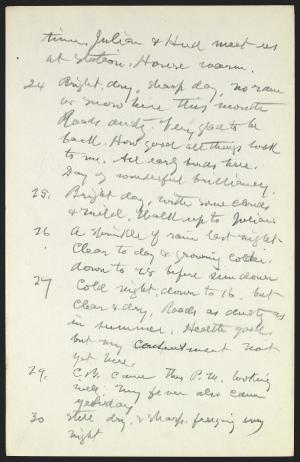 time, Julian & Hud meet us
at station. House warm.
24 Bright, dry, sharp day, no rain
or snow here this month
Roads dusty. Very glad to be
back. How good all things look
to me. All early birds here.
Day of wonderful brilliancy.
25. Bright day, with some clouds
& mild. Walk up to Julians
26 A sprinkle of rain last night.
Clear to day & growing colder.
down to 28 before sun down
27 Cold night, down to 16. but
clear & dry, Roads as dusty as
in summer. Health good
but my contentment not
yet here.
29. C.B. came this P.M. looking
well; my fever also came
yesterday
30 Still dry, & sharp, freezing every
night